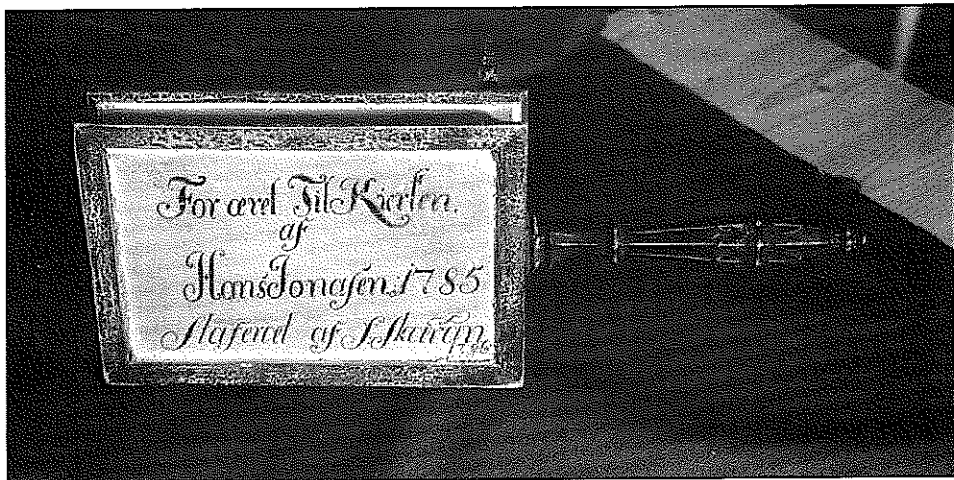 For æret Til Kircken.
af
Hans Jonasen, 1785
Staferet af
1786